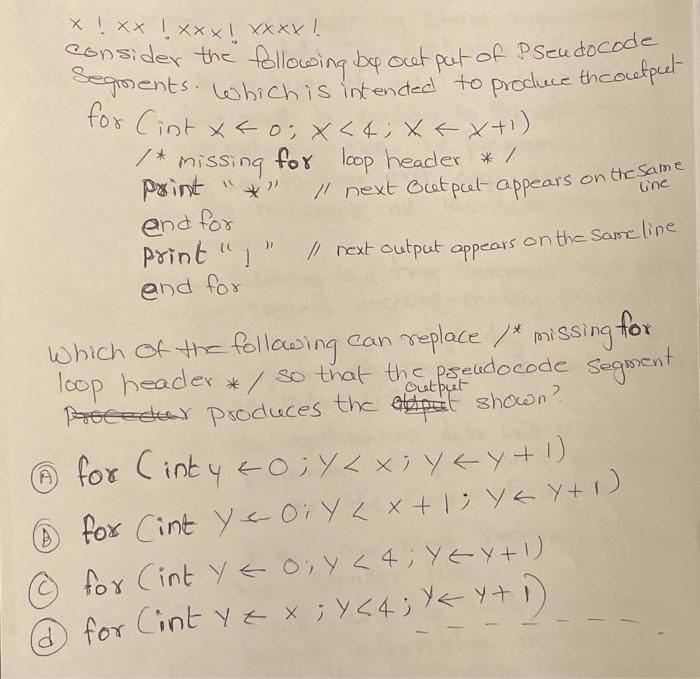 x ! xx ! xxx! xxxx !
Consider the following bp out put of Pseudocode
Segments. Which is intended to produce the output
for (int x ← 0; x < 4; x ← x+1)
/* missing for loop header */
print "*" // next output appears on the same line
end for
print "!" // next output appears on the same line
end for
Which of the following can replace /* missing for
loop header */ so that the pseudocode segment
produces the output shown?
(A) for (int y ← 0; y < x; y ← y + 1)
(B) for (int y ← 0; y < x + 1; y ← y + 1)
(C) for (int y ← 0; y < 4; y ← y + 1)
(d) for (int y ← x; y < 4; y ← y + 1)